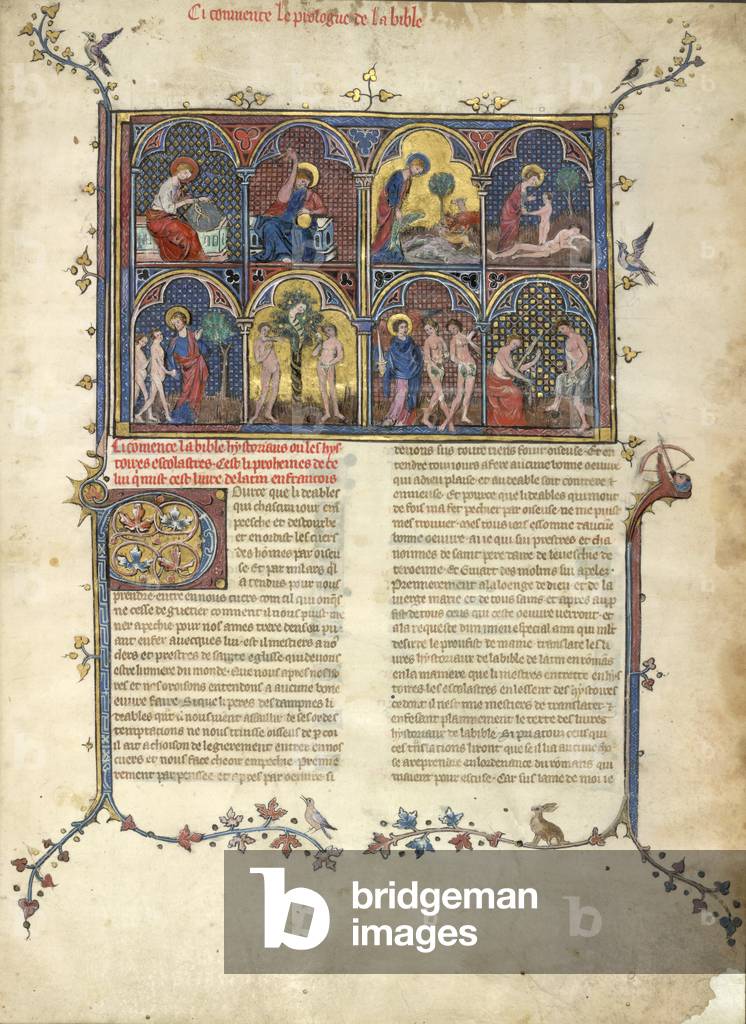 Ci commence le prologue de la bible
Ci comence la bible hystoriaus ou les hys-
toires escolastres. Cest li prohemes de ce
lui q mist cest liure de latin en francois
Pource que li deables
qui chascun iour em
presche et destourbe
et enordist les cuers
des homes par oiseu
se et par milars
a tendus pour nous
prendre. entre en nous cuers com cil qui onqs
ne cesse de guetier comment il nous puist me
ner a pechie pour nos ames trere de son pu
ant enfer auecques lui. est il mestiers a no
clers et prestres de sainte eglise qui deuons
estre lumiere du monde. Que nous apres nos ho
res et nos oroisons entendons a aucune bone
euure faire. Si que li peres des dampnes li
deables quant il nous vient assaillir de ses ordes
temptacions ne nous truisse oiseus de p coi
il ait achoison de legierement entrer en nos
cuers et nous face cheoir en pechie. Premie
rement par pensee et apres par oeuure. si
deuons sus toute riens fouir oiseuse. Et en
tendre tous iours a fere aucune bonne oeuure
qui a dieu plaise. et au deable soit contrere et
ennuieuse. Et pource que li deables qui mout
de fois ma fet pechier par oiseuse ne me puist
mes trouuer. mes tous iours essomme daucune
bonne oeuure. ai ie qui sui prestres et cha
noinnes de saint pere daire de leuesche de
teroenne. Et Guiart des molins sui apelez.
Premierement a la loenge de dieu et de la
vierge marie et de tous sains et apres au p
fit de tous ceus qui ceste oeuure verront. et
a la requeste dun mien especial ami qui mlt
desirre le proufist de mame translate les li
ures hystoriaux de la bible de latin en romans
en la maniere que li mestres entrette en hys
toires les escolastres en lessent des hystoires
ce dont il nest mie mestiers de translater. et
ensessent plainnement le texte des liures
hystoriaux de la bible. Si pri a tous ceus qui
ces translations liront que se il i a aucune cho
se a reprendre en lordenance du romans qui
maient pour escuse. Car sus lame de moi ie
bridgeman
images